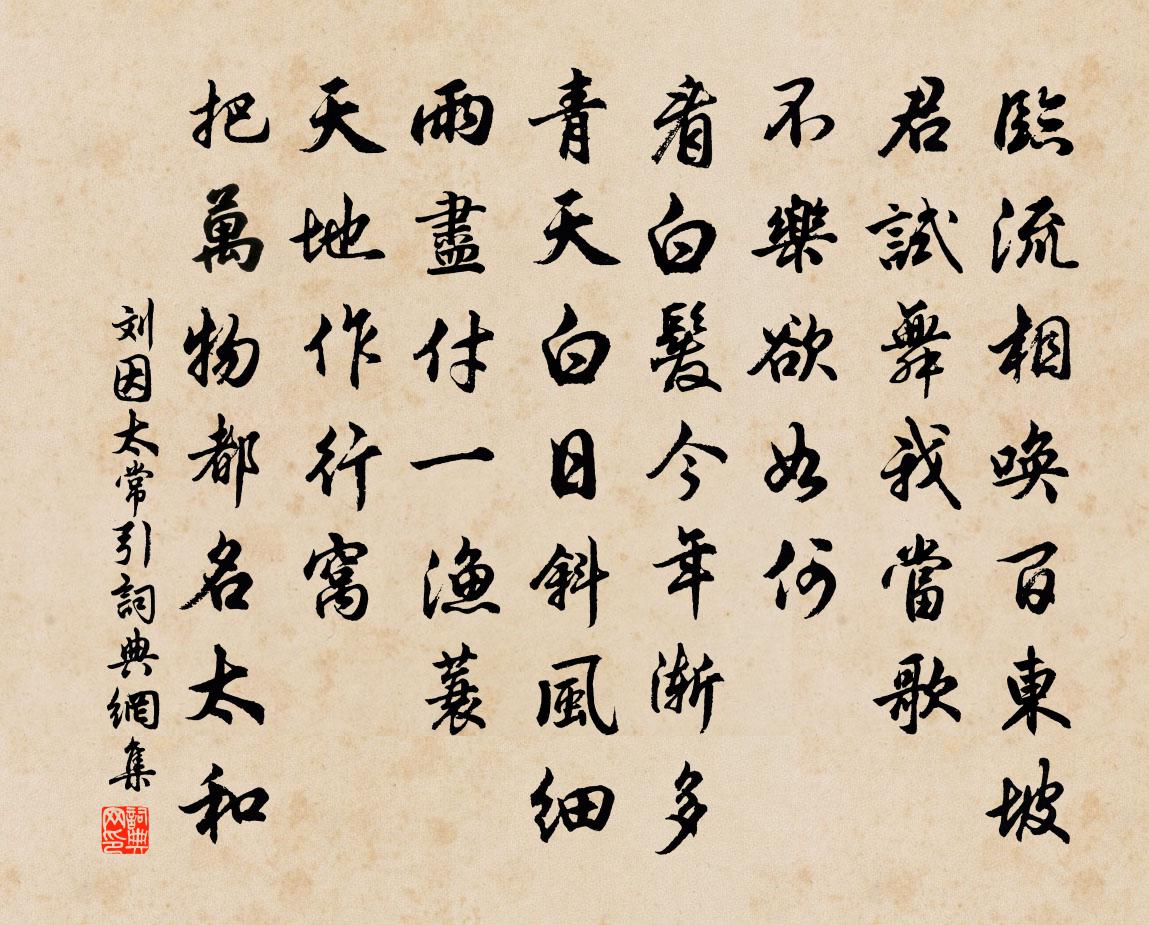 臨流相喚百東坡
君試舞我當歌
不樂欲如何
看白髮今年漸多
青天白日斜風細
雨盡付一漁蓑
天地作行窩
把萬物都名太和
刘因太常引詞典網集
詞典网印